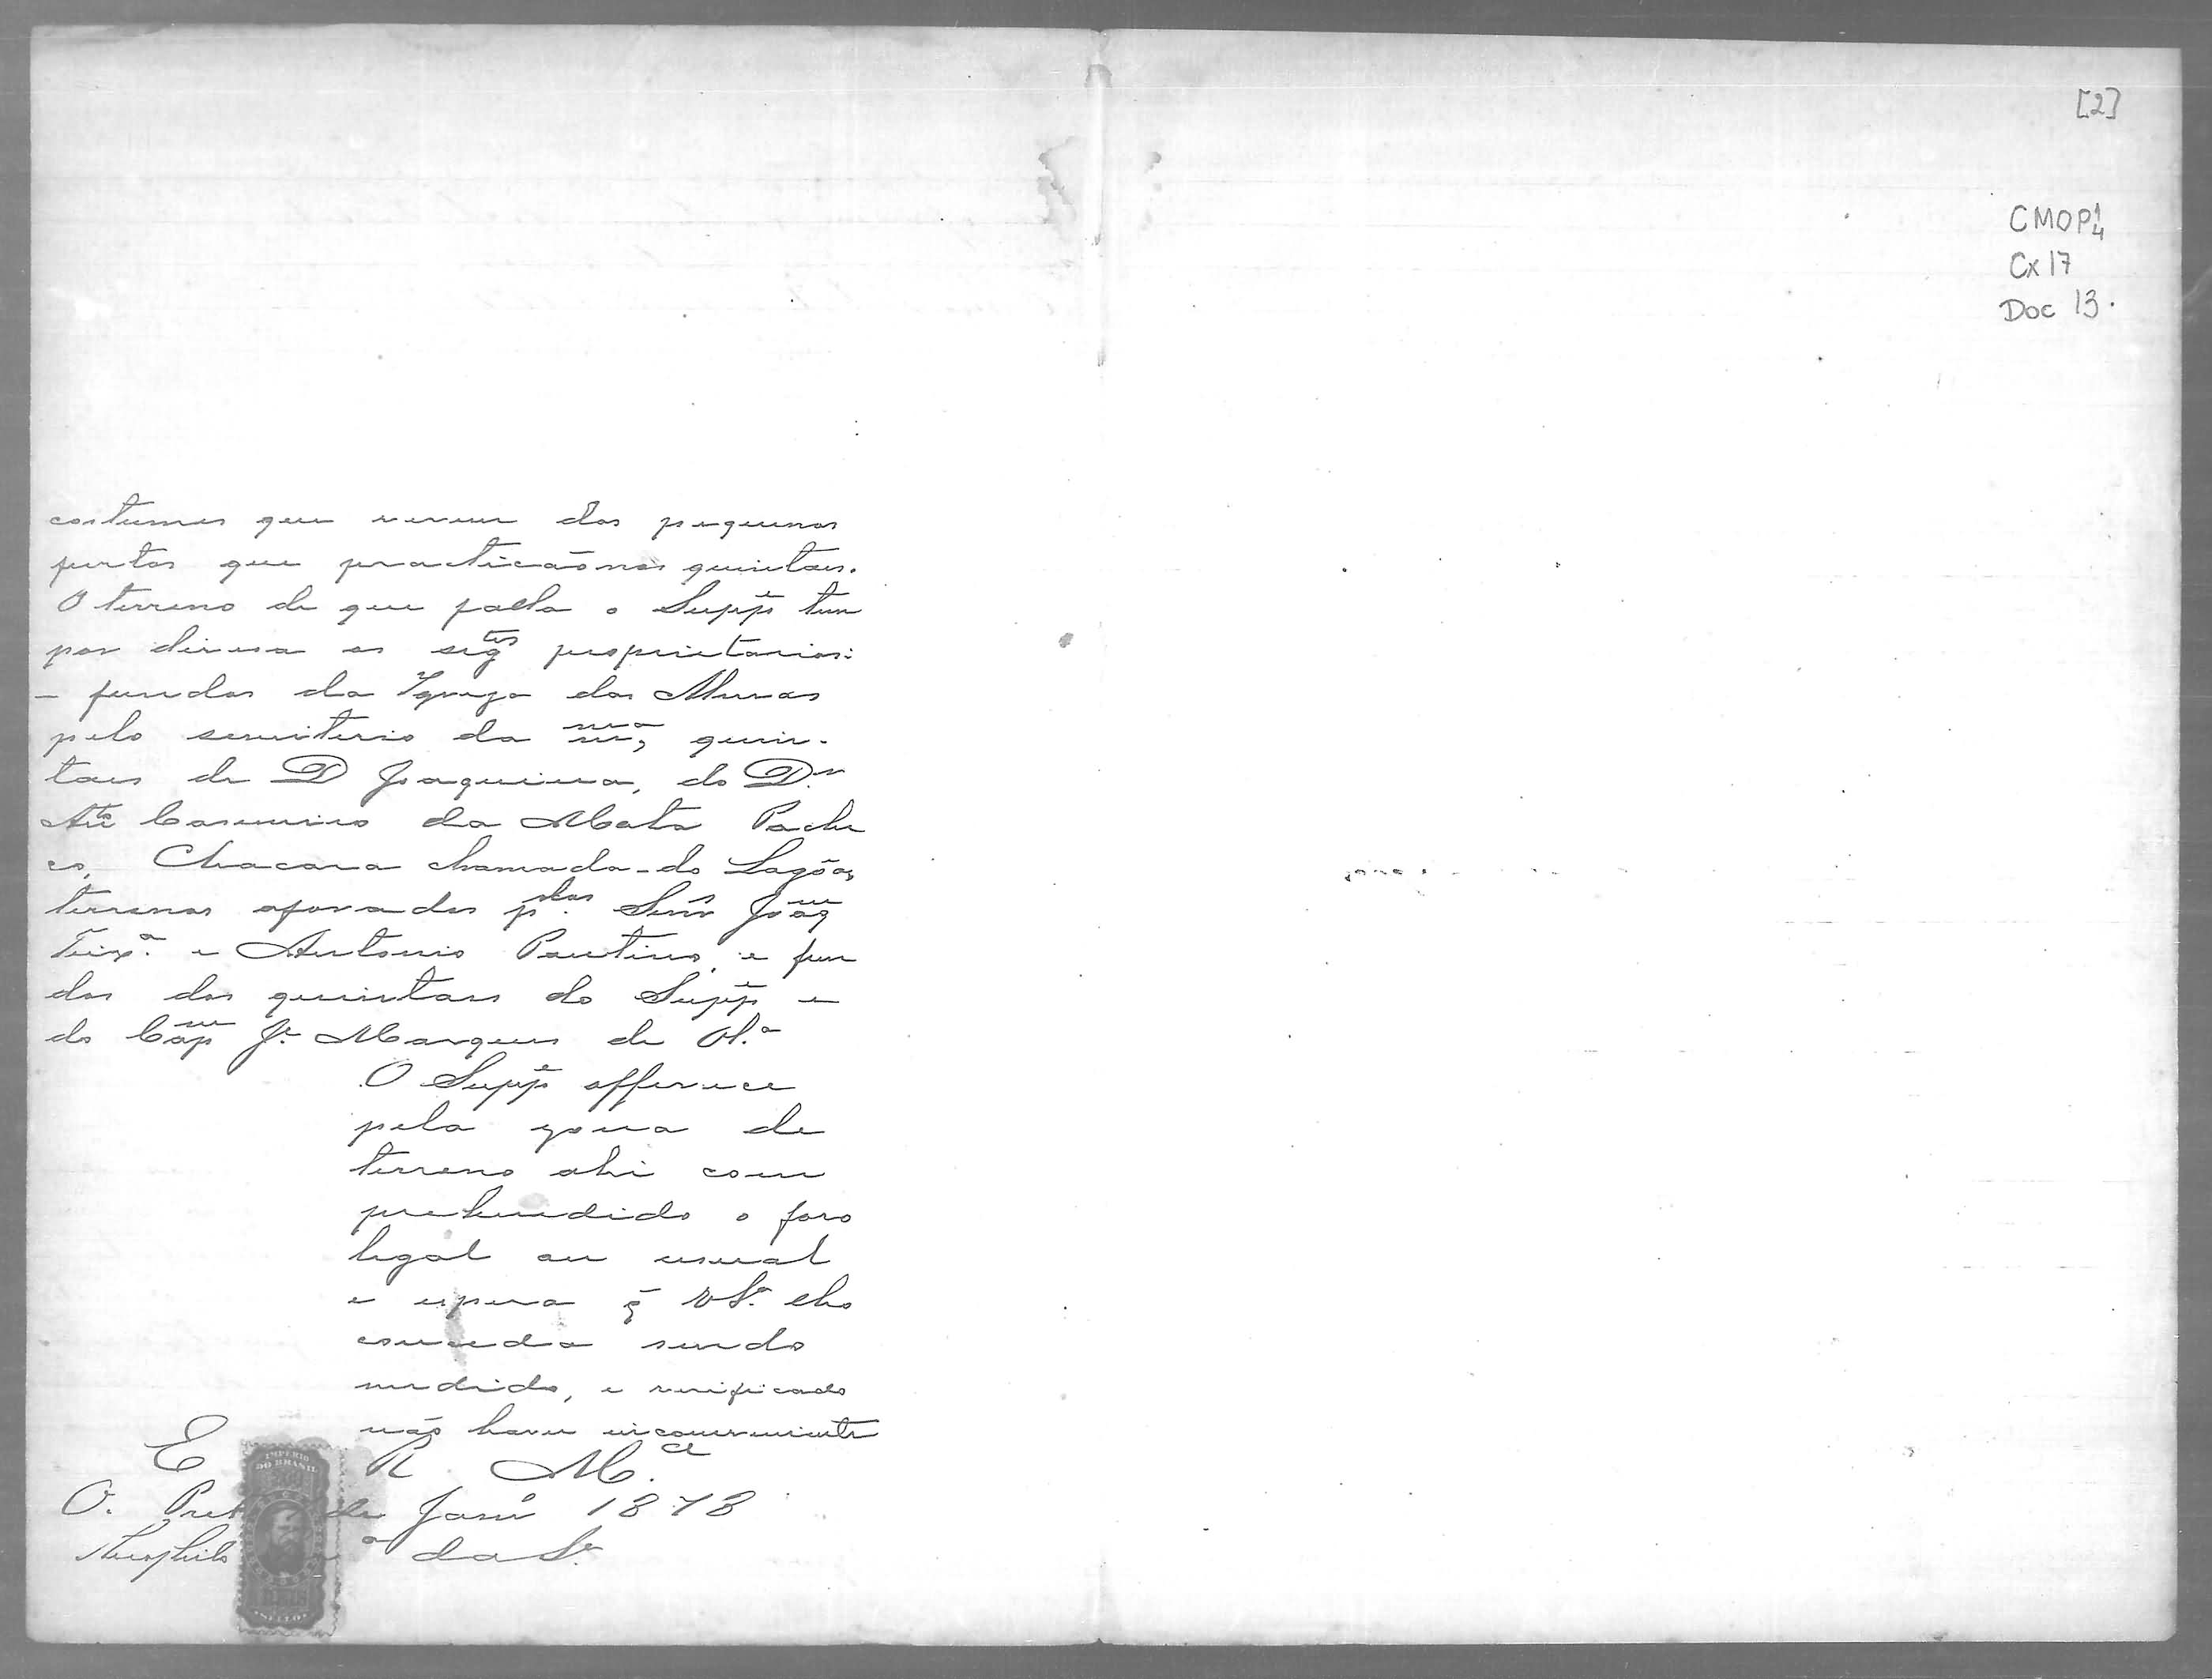 costumes que vem dos pequenos
furtos que practicão nos quintaes.
O terreno de que falla o Supp^e tem
por divisa os seg^tes proprietarios:
– fundos da Igreja das Merces
pelo semiterio da m^ma, quin-
taes de D Joaquina, do D^r
Ant^o Casemiro da Motta Pache
co, Chacara chamada – do Lagoa,
terrenos aforados p^los Senr^s Joaq^m
Teix^a e Antonio Paulino, e fun
dos dos quintaes do Supp^e e
do Cap^m J^e Marques de Ol^a
O Supp^e offerece
pela zona de
terreno ahi com
prehendido o foro
legal ou usual
e espera q̃ VS^a lho
conceda sendo
medido, e verificado
não haver inconveniente
E R M^ce
O. Preto de Janr^o 1878
Theophilo da S^a
IMPERIO
DO BRASIL
200
SELLO
[2]
CMOP 1/4
Cx 17
Doc 13.